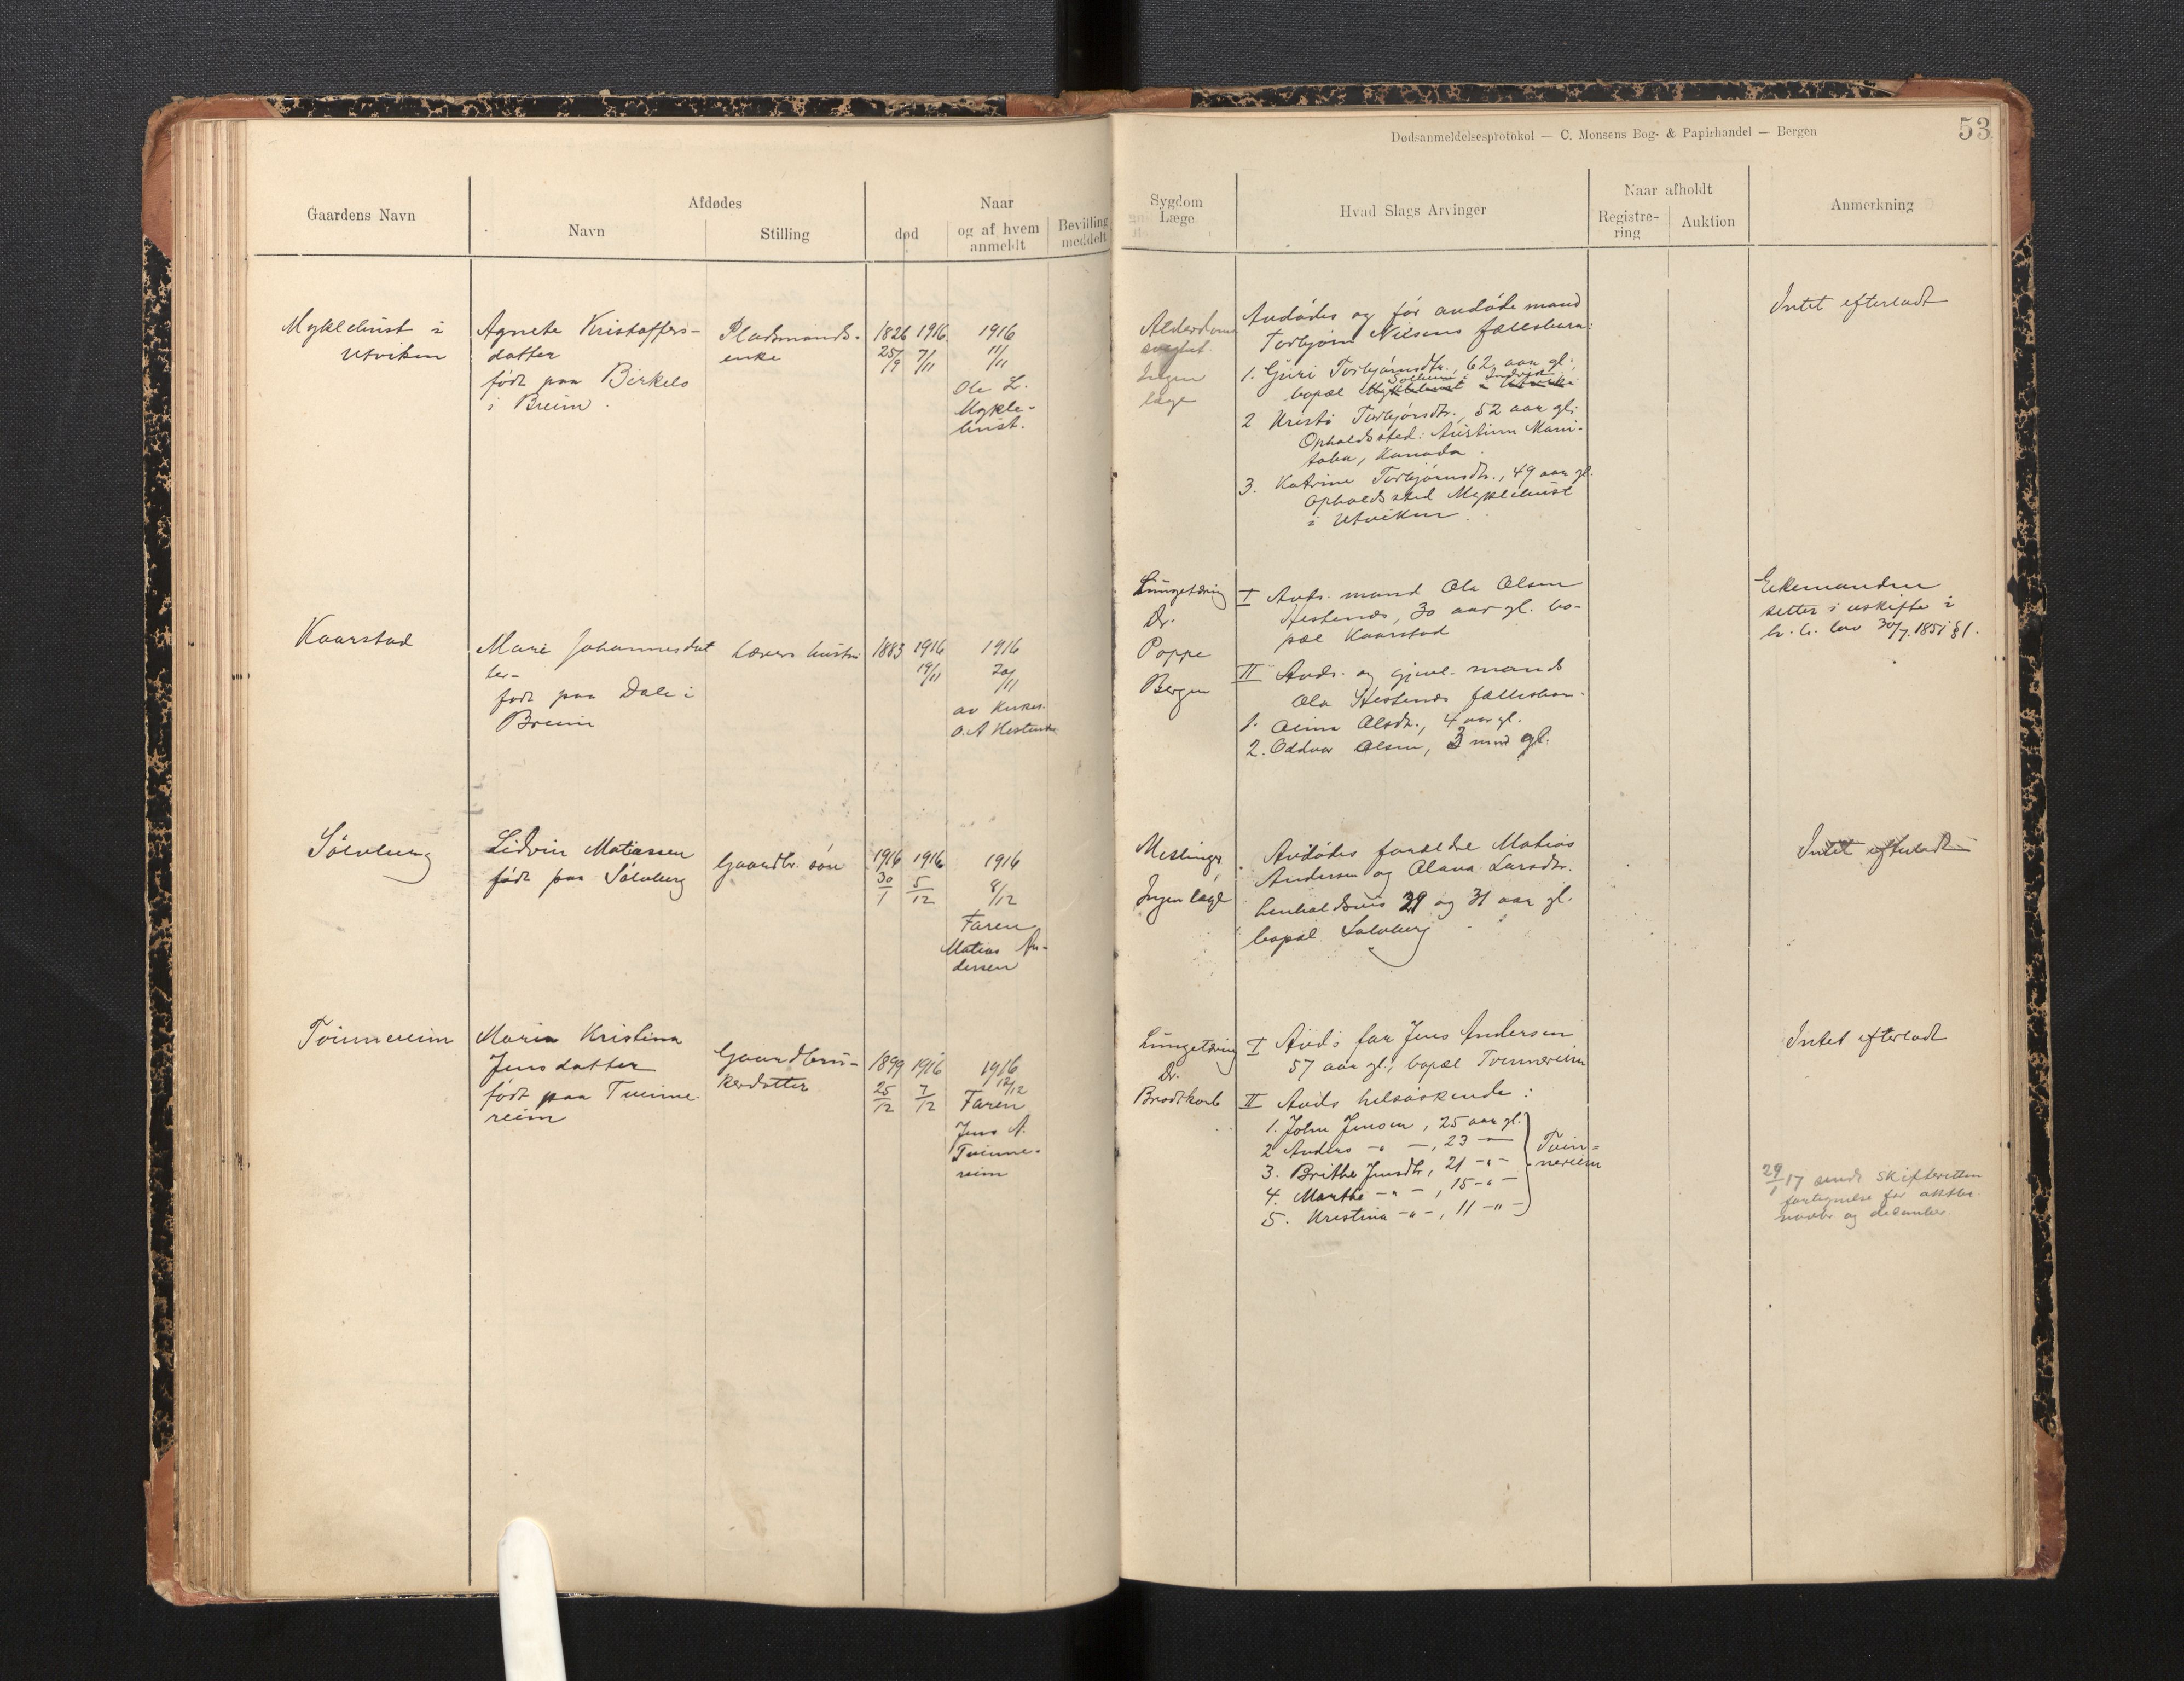 Dødsanmeldelsesprotokol — C. Monsens Bog- & Papirhandel — Bergen
53
Gaardens Navn
Afdødes
Navn
Stilling
Naar
død
og af hvem
anmeldt
Bevilling
meddelt
Sygdom
Læge
Hvad Slags Arvinger
Naar afholdt
Registre-
ring
Auktion
Anmerkning
Myklebust i
Utviken
Agnete Kristoffers-
datter
født paa Birkelo
i Breim.
Pladsmands-
enke
1826 1916
25/9 7/11
1916
11/11
Ole L.
Mykle-
bust.
Alderdoms
svaghet.
Ingen
læge
Avdødes og før avdøde mand
Torbjørn Nilsens fællesbarn:
1. Guri Torbjørnsdtr., 62 aar gl.,
bopæl Myklebust i Utviken
2 Kristi Torbjørnsdtr., 52 aar gl.
Opholdssted: Austinn Mani-
toba, Kanada.
3. Katrine Torbjørnsdtr., 49 aar gl.
Opholdssted Myklebust
i Utviken.
Intet efterladt
Kaarstad
Mari Johannesdat
ter-
født paa Dale i
Breim
Lærers hustru
1883 1916
19/11
1916
20/11
av kirkes.
O. A Hestenes
Lungetæring
Dr.
Poppe
Bergen
I Avds. mand Ola Olsen
Hestenes, 30 aar gl. bo-
pæl Kaarstad
II Avds. og gjenl. mands
Ola Hestenes fællesbarn.
1. Olsdtr., 4 aar gl.
2. Oddvar Olsen, 3 mnd gl.
Enkemanden
sitter i uskifte i
h. t. lov 30/7. 1851 § 1.
Sølvberg
Lidvin Matiassen
født paa Sølvberg
Gaardbr. søn
1916 1916
30/1 5/12
1916
8/12
Faren
Matias An-
dersen
Meslinger
Ingen læge
Avdødes forældre Matias
Andersen og Olava Larsdtr.
henholdsvis 29 og 31 aar gl.
bopæl Sølvberg
Intet efterladt
Tvinnereim
Maria Kristina
Jensdatter
født paa Tvinne-
reim
Gaardbru-
kerdatter
1899 1916
25/12 7/12
1916
12/12
Faren
Jens A.
Tvinne-
reim
Lungetæring
Dr.
Brodtkorb
I Avds far Jens Andersen
57 aar gl., bopæl Tvinnereim
II Avds helsøskende:
1. John Jensen, 25 aar gl.
2 Anders -"- -, 23 -"-
3. Brithe Jensdtr, 21 -"-
4. Marthe -"-, 15 -"-
5. Kristina -"-, 11 -"-
Tvin-
nereim
Intet efterladt
29/1 17 sendt skifteretten
fortegnelse for oktbr.
novbr og december.